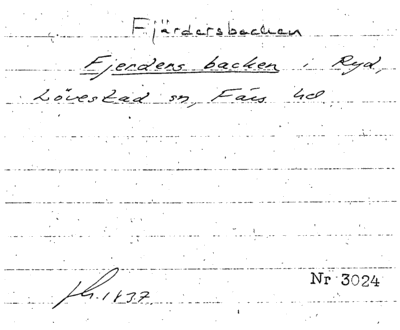 Fjärdersbacken
Fjerdens backen i Ryd,
Lövestad sn, Färs hd
1837
Nr 3024